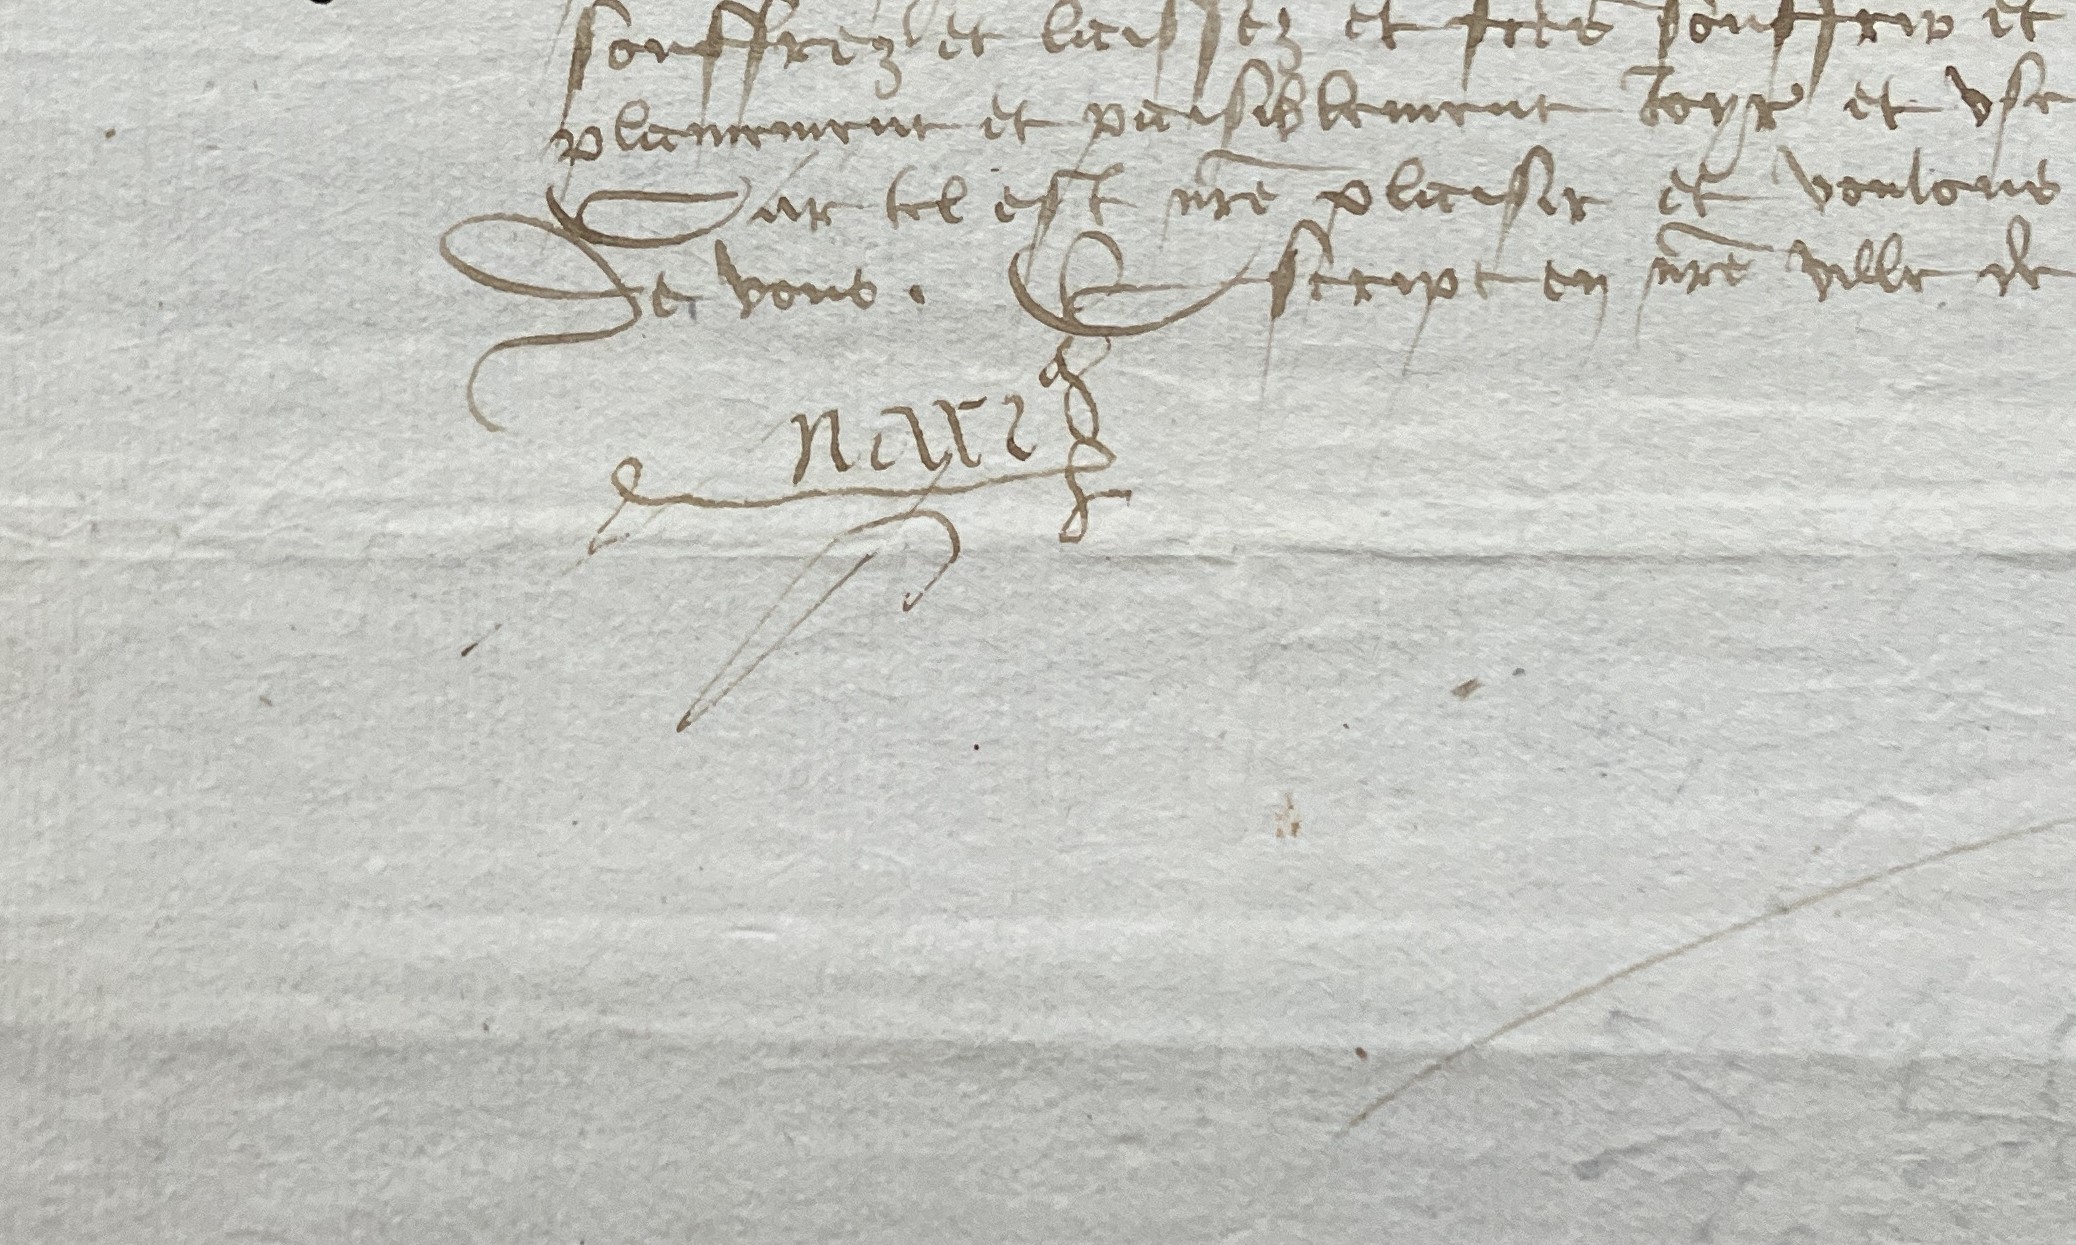 souffrez et laissez et ftes souffrir et
plainement et paisiblement Joyr et vse
Car tel est nre plaisir et voulons
De vous . Escript en nre ville de